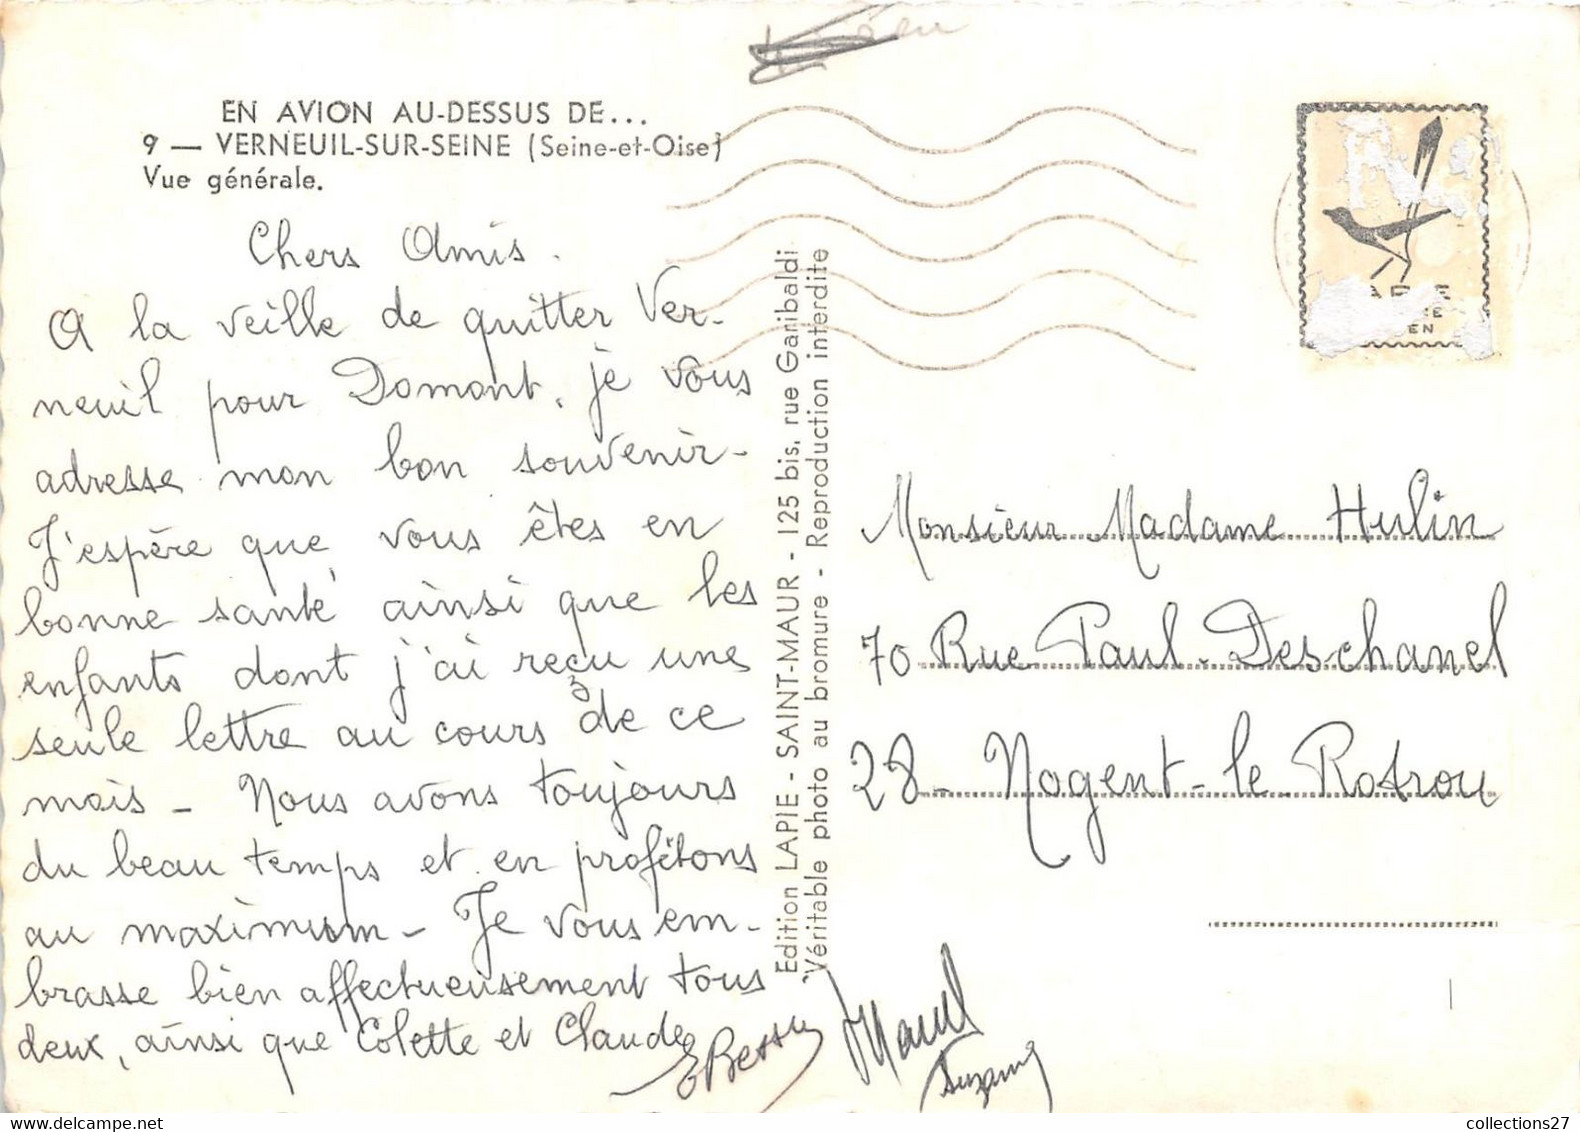 EN AVION AU-DESSUS DE...
9 — VERNEUIL-SUR-SEINE (Seine-et-Oise)
Vue générale.
Chers Amis.
A la veille de quitter Ver-
neuil pour Domont, je vous
adresse mon bon souvenir-
J'espère que vous êtes en
bonne santé ainsi que les
enfants dont j'ai reçu une
seule lettre au cours de ce
mois - Nous avons toujours
du beau temps et en profitons
au maximum - Je vous em-
brasse bien affectueusement tous
deux, ainsi que Colette et Claude
Marcel
Suzanne
Edition LAPIE - SAINT-MAUR - 125 bis, rue Garibaldi
Véritable photo au bromure - Reproduction interdite
EN
Monsieur Madame Hulin
70 Rue Paul-Deschanel
28- Nogent-le Rotrou
collections27